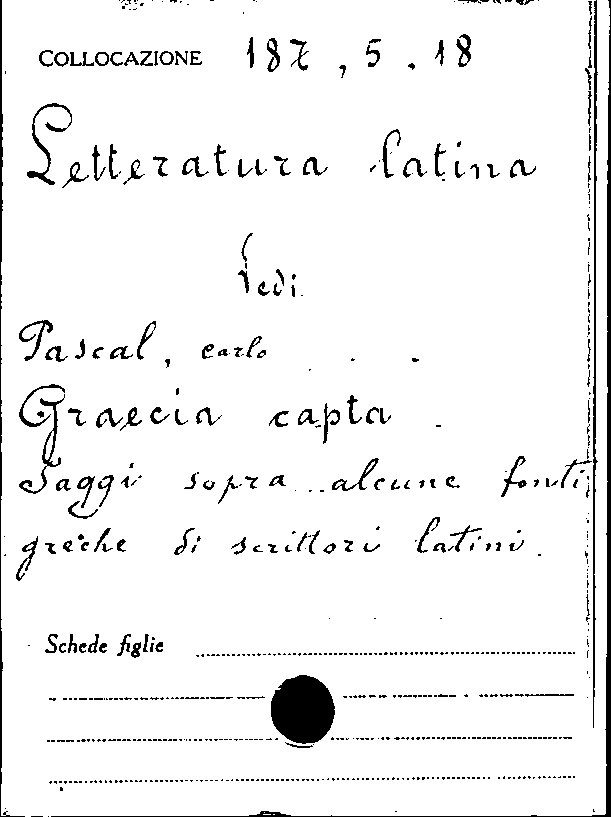 COLLOCAZIONE 187, 5. 18
Letteratura latina
Vedi
Pascal, Carlo
Graecia capta.
Saggi sopra alcune fonti
greche di scrittori latini.
Schede figlie